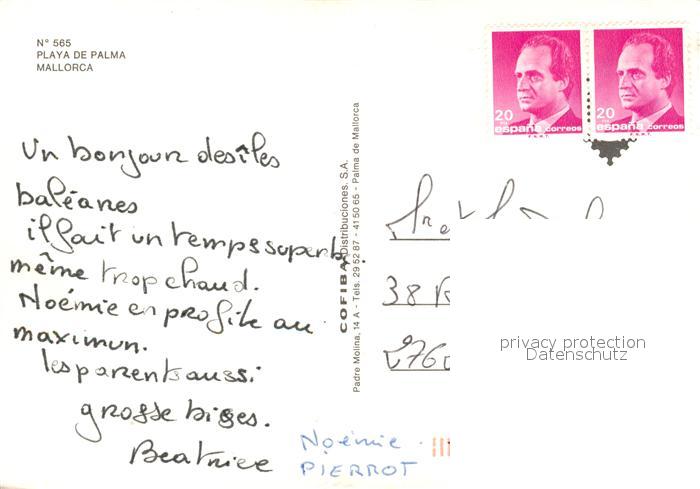 Nº 565
PLAYA DE PALMA
MALLORCA
20
PTA
españa correos
F.N.M.T.
20
PTA
españa correos
F.N.M.T.
Un bonjour des îles
baléares
il fait un temps superbe,
même trop chaud.
Noémie en profite au
maximum.
les parents aussi
grosse bises.
Beatrice
Noémie
PIERROT
COFIBA Distribuciones. S.A.
Padre Molina, 14 A - Tels. 29 52 87 - 41 50 65 - Palma de Mallorca
38
276
privacy protection
Datenschutz